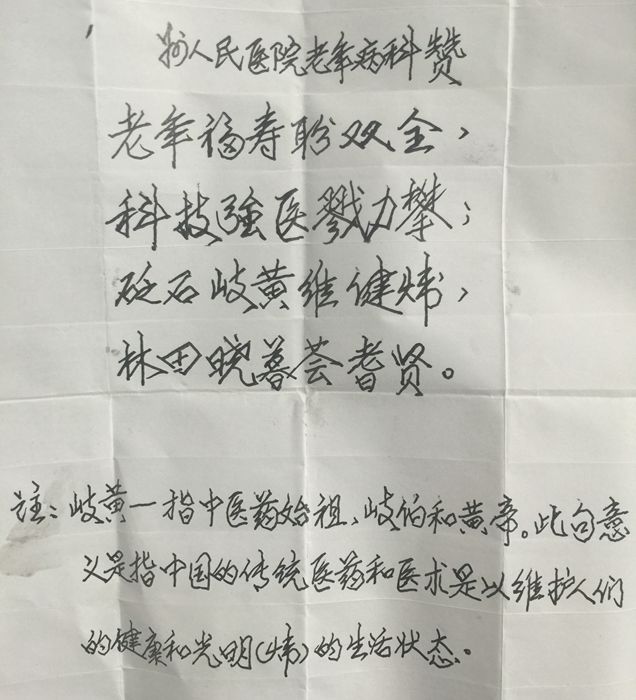 州人民医院老年病科赞
老年福寿盼双全，
科技强医戮力攀；
砭石岐黄维健炜，
林田晓暮荟耆贤。
注：岐黄一指中医药始祖、岐伯和黄帝。此句意
义是指中国的传统医药和医术是以维护人们
的健康和光明(炜)的生活状态。